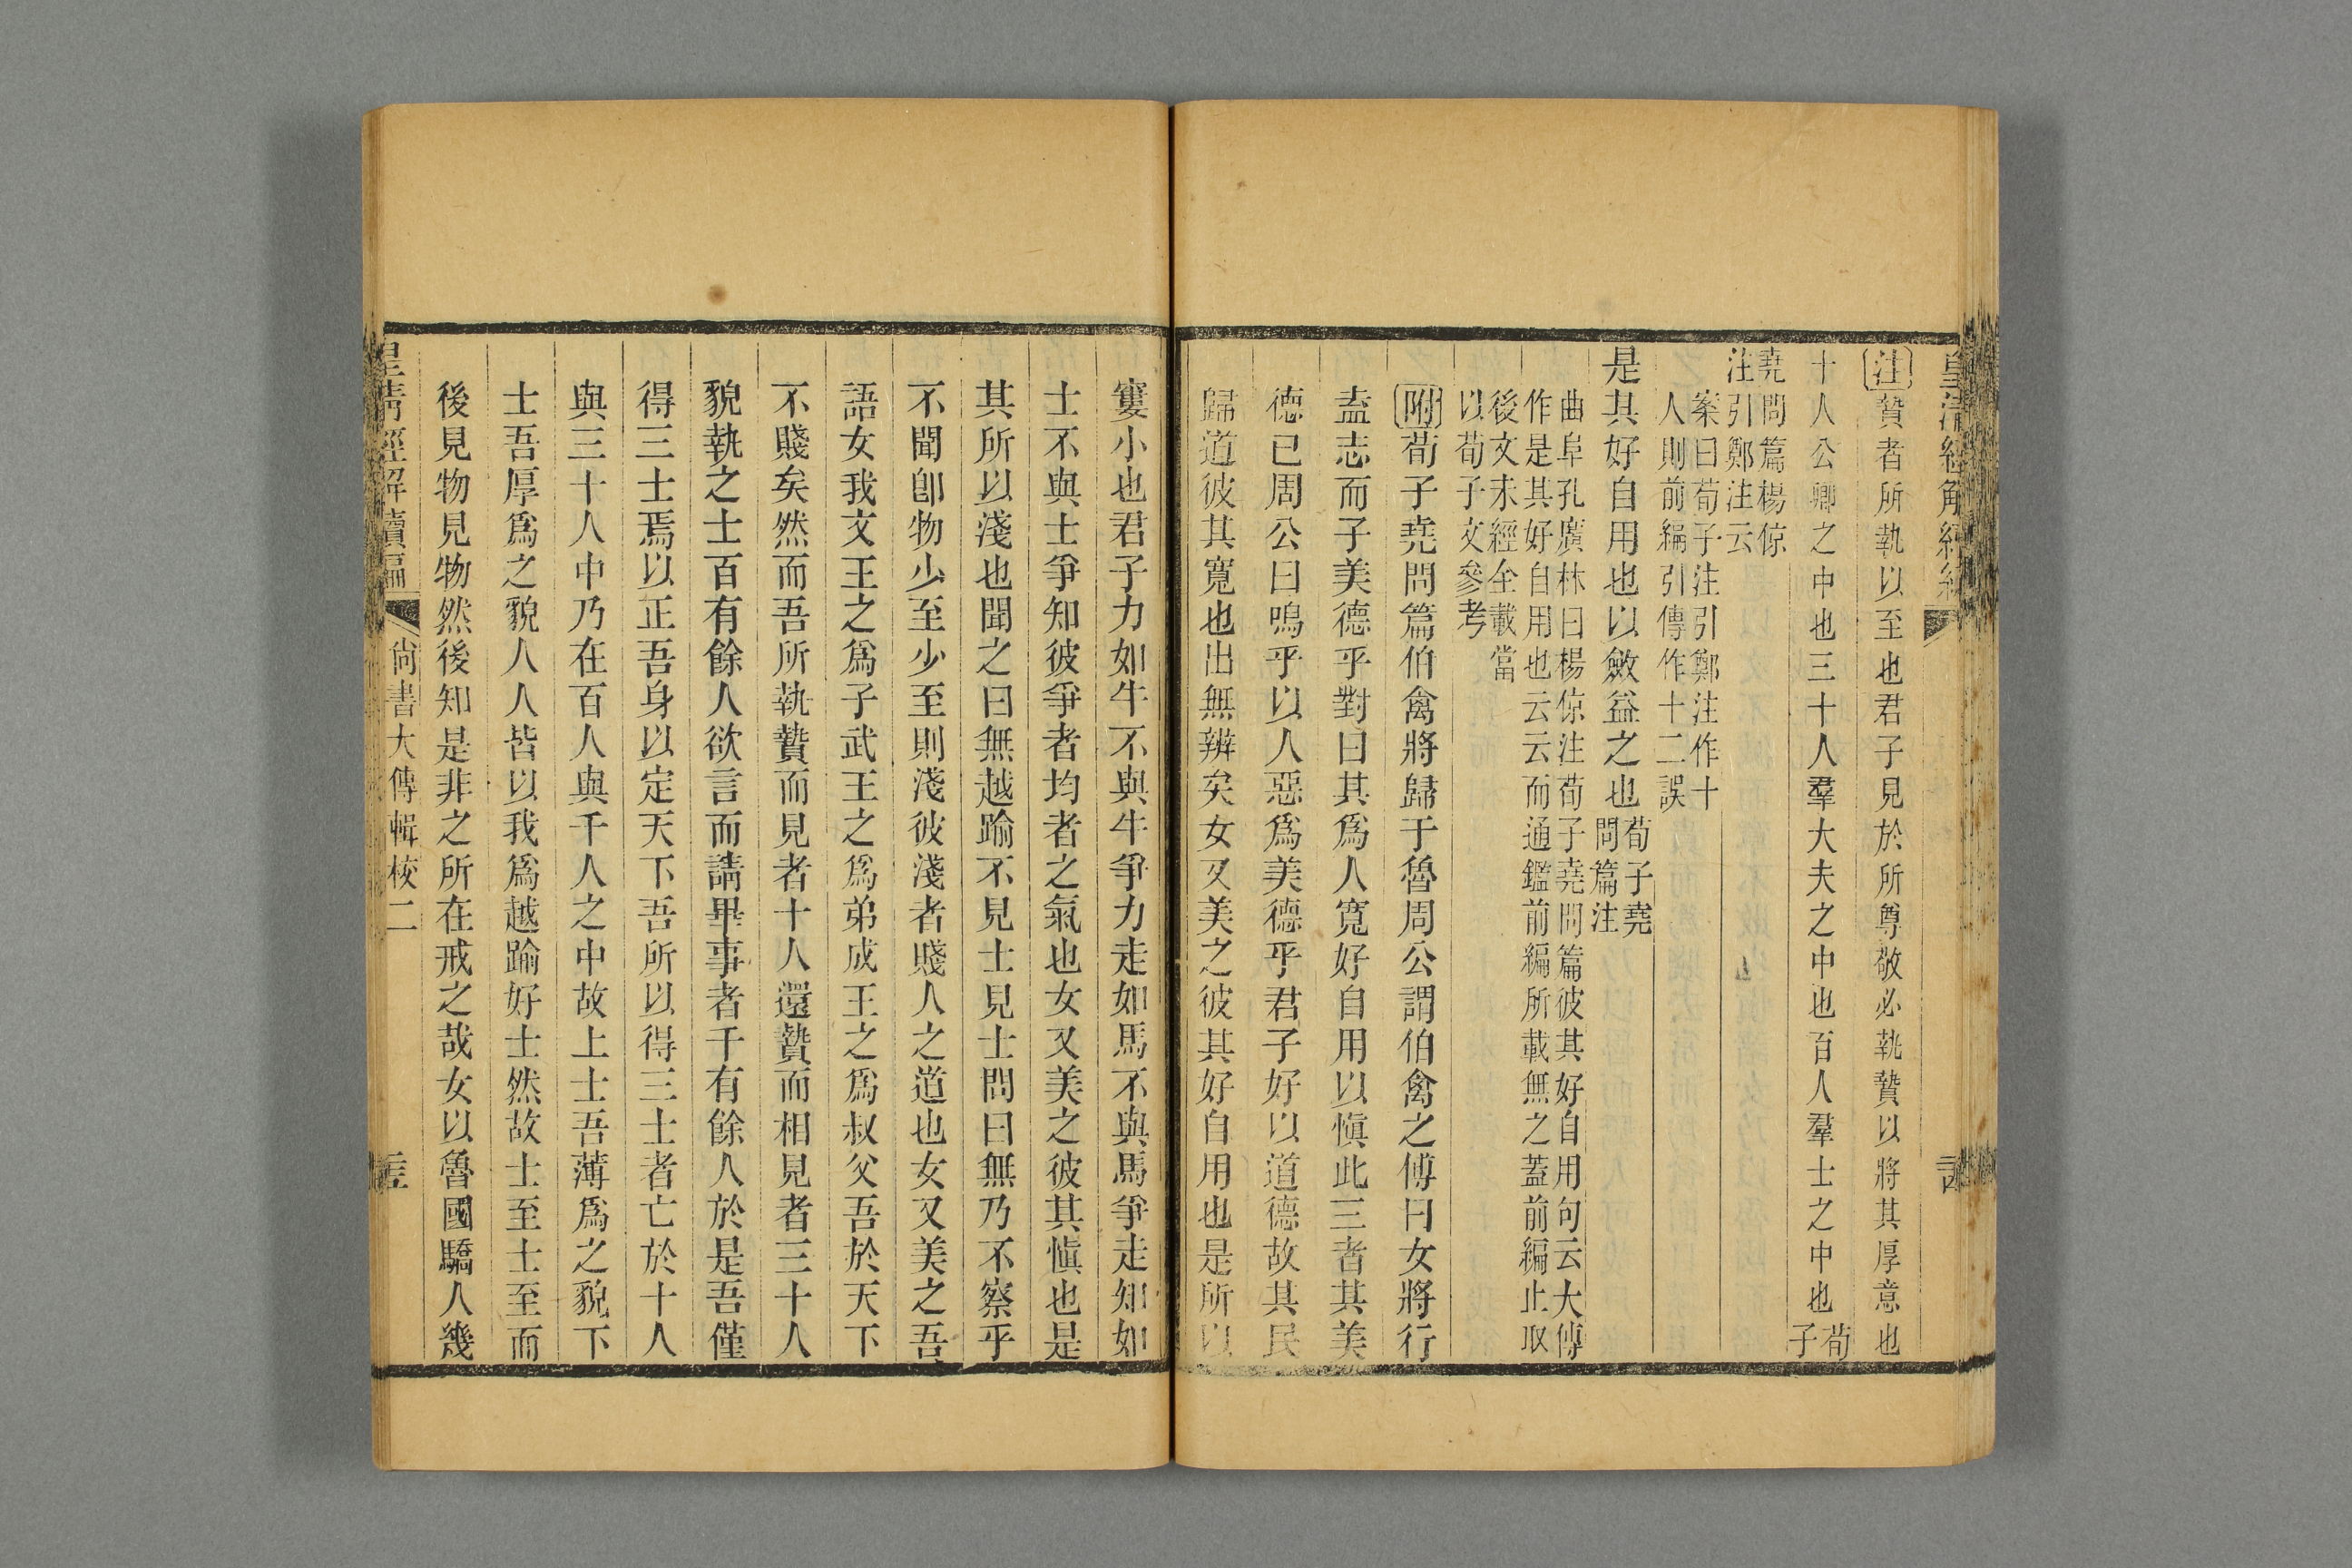 皇清經解續編
注贄者所執以至也君子見於所尊敬必執贄以將其厚意也
十人公卿之中也三十人羣大夫之中也百人羣士之中也荀子
堯問篇楊倞
注引鄭注云
案曰荀子注引鄭注作十
人則前編引傳作十二誤
是其好自用也以斂益之也荀子堯問篇注
曲阜孔廣林曰楊倞注荀子堯問篇彼其好自用句云大傳
作是其好自用也云云而通鑑前編所載無之蓋前編止取
後文未經全載當
以荀子文參考
附荀子堯問篇伯禽將歸于魯周公謂伯禽之傅曰女將行
盍志而子美德乎對曰其爲人寬好自用以愼此三者其美
德已周公曰嗚乎以人惡爲美德乎君子好以道德故其民
歸道彼其寬也出無辨矣女又美之彼其好自用也是所以
窶小也君子力如牛不與牛爭力走如馬不與馬爭走知如
士不與士爭知彼爭者均者之氣也女又美之彼其愼也是
其所以淺也聞之曰無越踰不見士見士問曰無乃不察乎
不聞卽物少至少至則淺彼淺者賤人之道也女又美之吾
語女我文王之爲子武王之爲弟成王之爲叔父吾於天下
不賤矣然而吾所執贄而見者十人還贄而相見者三十人
貌執之士百有餘人欲言而請畢事者千有餘人於是吾僅
得三士焉以正吾身以定天下吾所以得三士者亡於十人
與三十人中乃在百人與千人之中故上士吾薄爲之貌下
士吾厚爲之貌人人皆以我爲越踰好士然故士至士至而
後見物見物然後知是非之所在戒之哉女以魯國驕人幾
皇清經解續編
尙書大傳輯校二